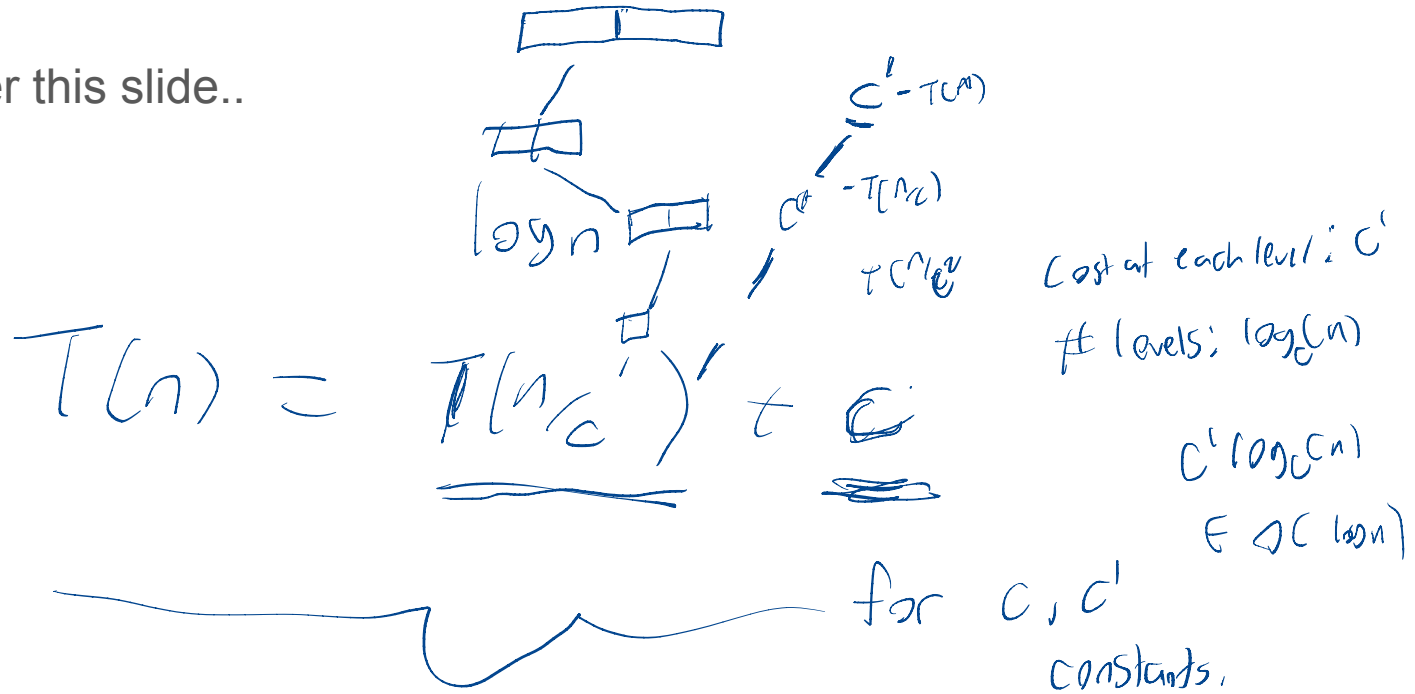 er this slide..
C' - T(n)
C' - T(n/c)
T(n/c²
log n
Cost at each level: C'
# levels: log_c(n)
T(n) = T(n/c) + C
C' log_c(n)
∈ O(log n)
for c, c'
constants.